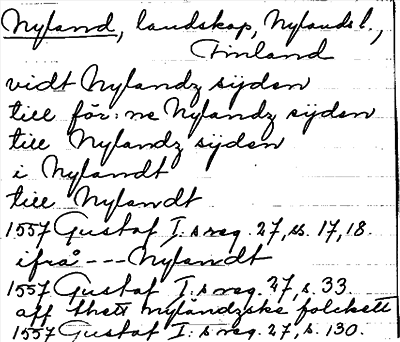 Nyland, landskap, Nylands l.,
Finland
vidt Nylandz sijden
till för:ne Nylandz sijden
till Nylandz sijden
i Nylandt
till Nylandt
1557 Gustaf I:s reg. 27, ss. 17, 18.
ifrå --- Nylandt
1557 Gustaf I:s reg. 27, s. 33.
aff thett nyländzske folckett
1557 Gustaf I:s reg. 27, s. 130.